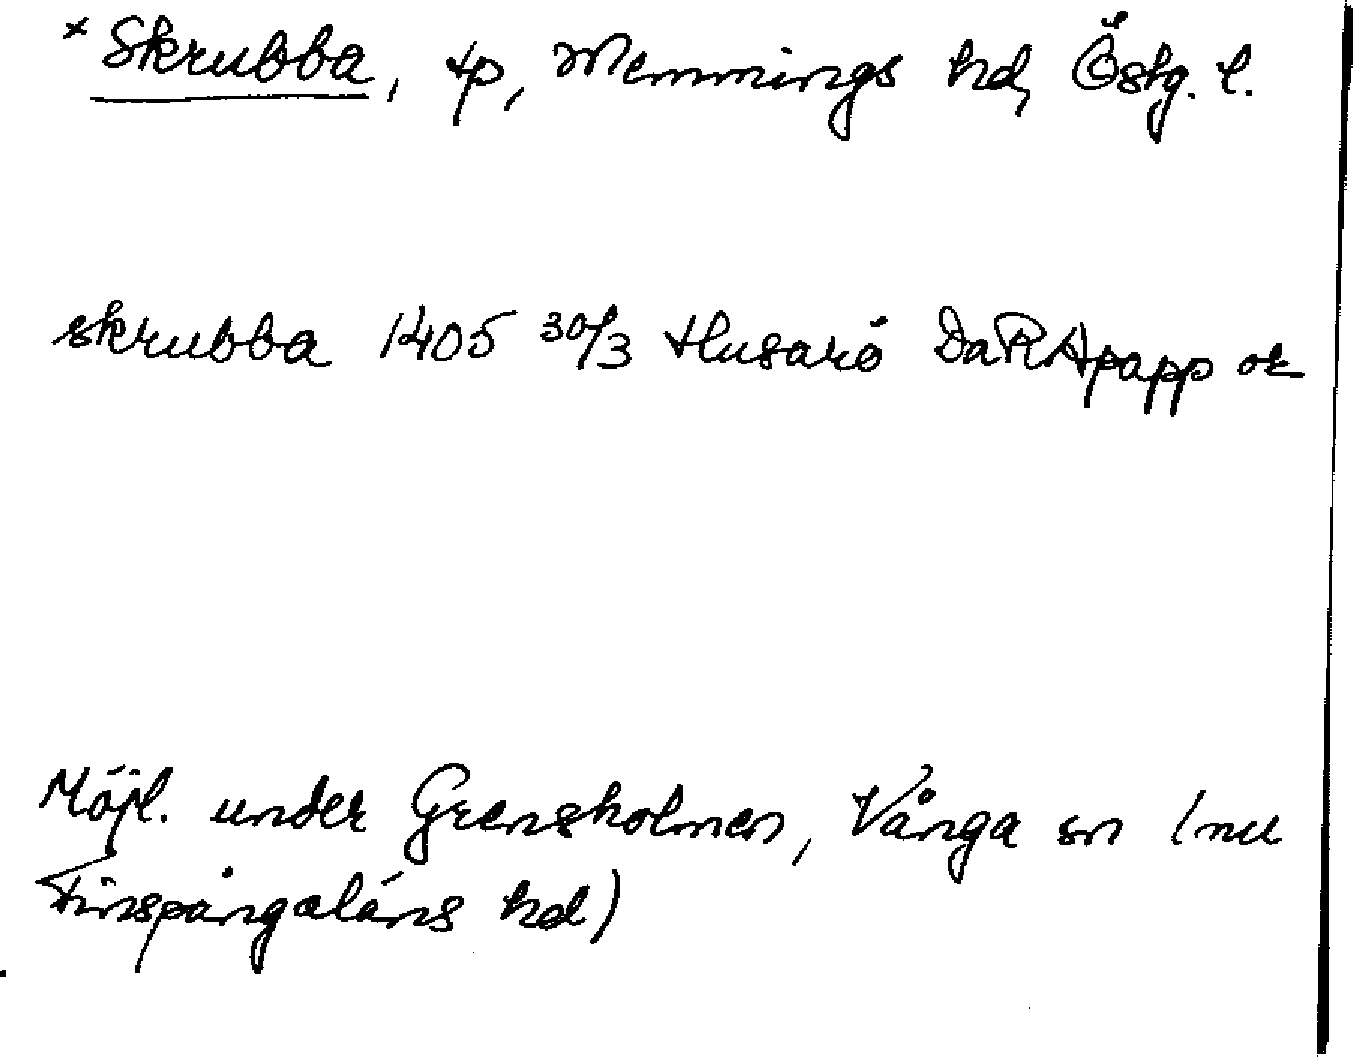 × Skrubba, tp, Memmings hd, Östg. l.
skrubba 1405 30/3 Husarö DaRApapp or
Möjl. under Grensholmen, Vånga sn (nu
Finspångaläns hd)